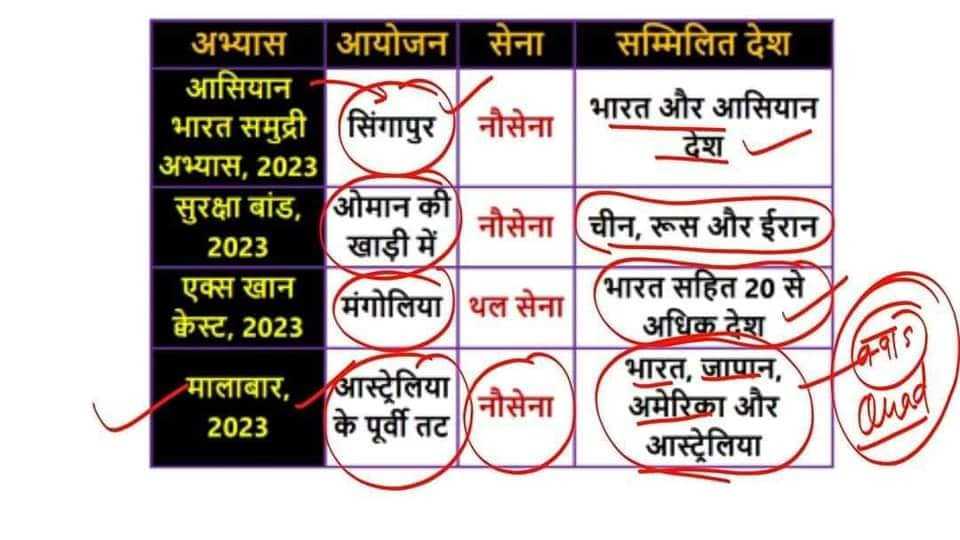 अभ्यास आयोजन सेना सम्मिलित देश
आसियान
भारत समुद्री
अभ्यास, 2023
सिंगापुर
नौसेना
भारत और आसियान
देश
सुरक्षा बांड,
2023
ओमान की
खाड़ी में
नौसेना
चीन, रूस और ईरान
एक्स खान
क्वेस्ट, 2023
मंगोलिया
थल सेना
भारत सहित 20 से
अधिक देश
मालाबार,
2023
आस्ट्रेलिया
के पूर्वी तट
नौसेना
भारत, जापान,
अमेरिका और
आस्ट्रेलिया
क्वाड
Quad